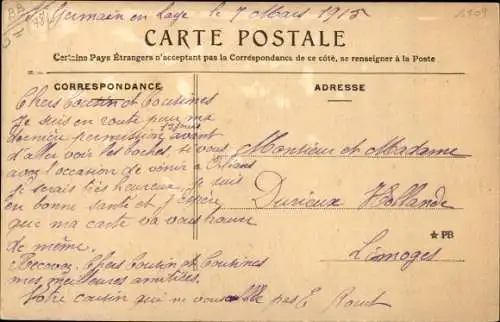 St Germain en Laye le 7 Mars 1915
CARTE POSTALE
Certains Pays Étrangers n'acceptant pas la Correspondance de ce côté, se renseigner à la Poste
CORRESPONDANCE
Chers Coutin et Coutines
Je suis en route pour ma
dernière permission avant
d'aller voir les boches, si vous
avez l'occasion de venir à Orléans
je serais très heureux. Je suis
en bonne santé et j'espère
que ma carte va vous trouver
de même.
Recevez Chers Coutin et Coutines
mes meilleures amitiés.
Votre cousin qui ne vous oublie pas E
ADRESSE
Monsieur et Madame
Durieux Hollande
Limoges
★PB